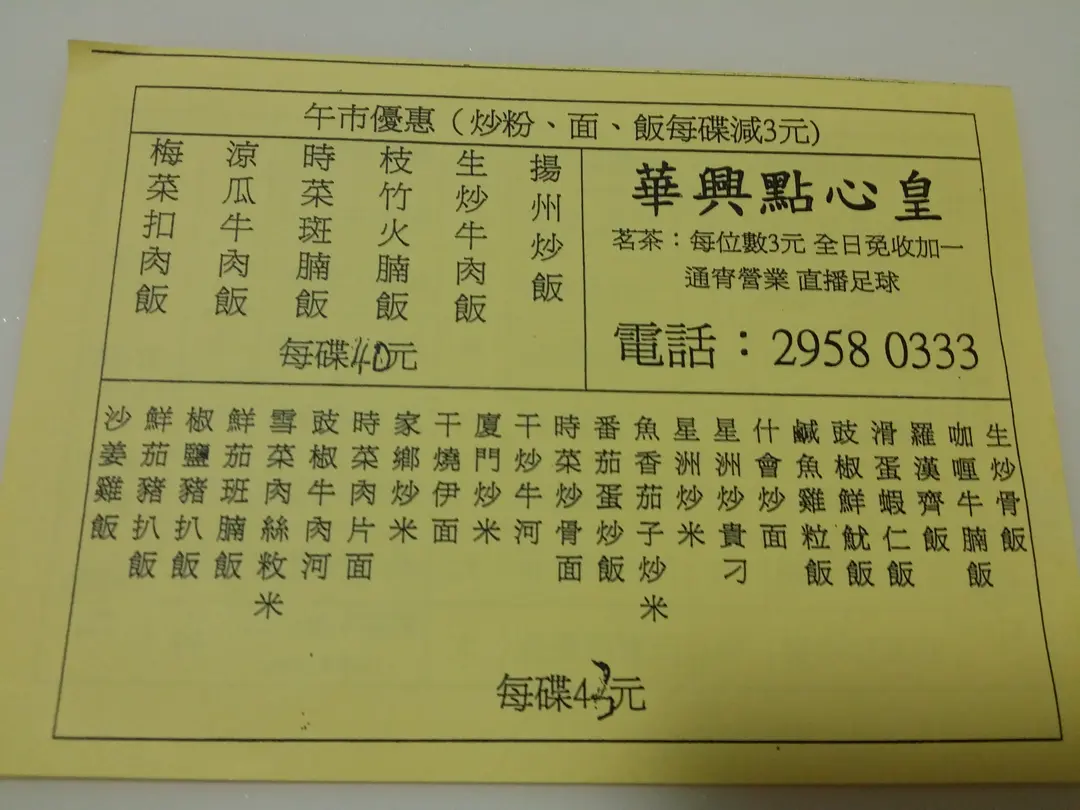 午市優惠（炒粉、面、飯每碟減3元)
華興點心皇
茗茶：每位數3元 全日免收加一
通宵營業 直播足球
電話：2958 0333
揚州炒飯
生炒牛肉飯
枝竹火腩飯
時菜斑腩飯
涼瓜牛肉飯
梅菜扣肉飯
每碟40元
生炒骨飯
咖喱牛腩飯
羅漢齊飯
滑蛋蝦仁飯
豉椒鮮魷飯
鹹魚雞粒飯
什會炒面
星洲炒貴刁
星洲炒米
魚香茄子炒米
番茄蛋炒飯
時菜炒骨面
干炒牛河
廈門炒米
干燒伊面
家鄉炒米
時菜肉片面
豉椒牛肉河
雪菜肉絲敉米
鮮茄班腩飯
椒鹽豬扒飯
鮮茄豬扒飯
沙姜雞飯
每碟43元